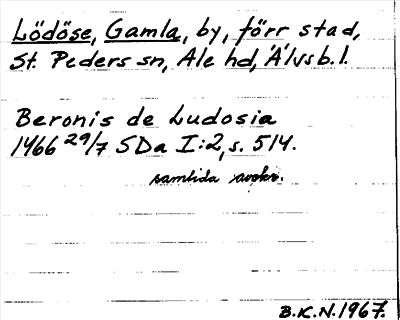 Lödöse, Gamla, by, förr stad,
St. Peders sn, Ale hd, Älvsb. l.
Beronis de Ludosia
1466 29/7 SDa I:2, s. 514.
samtida avskr.
B.K.N. 1967.